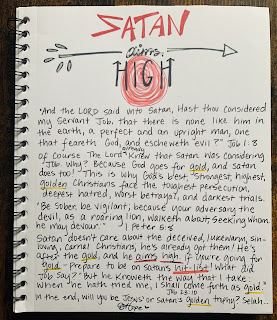 SATAN
aims
HIGH
"And the LORD said unto Satan, Hast thou considered
my Servant Job, that there is none like him in
the earth, a perfect and an upright man, one
that feareth God, and escheweth evil?" Job 1:8
Of course The Lord already Knew that Satan was considering
Job. Why? Because God goes for gold, and satan
does too! This is why God's best - strongest, highest,
golden Christians face the toughest persecution,
deepest hatred, worst betrayal, and darkest trials.
"Be sober, be vigilant; because your adversary the
devil, as a roaring lion, walketh about, seeking whom
he may devour." I Peter 5:8
Satan doesn't care about the deceived, lukewarm, sin-
loving, carnal Christians, he's already got them! He is
after the gold, and he aims high. If you're going for
gold - Prepare to be on Satan's hit-list! What did
Job say? "But he knoweth the way that I take:
when he hath tried me, I shall come forth as gold."
Job 23:10
In the end, will you be Jesus' or Satan's golden trophy? Selah...